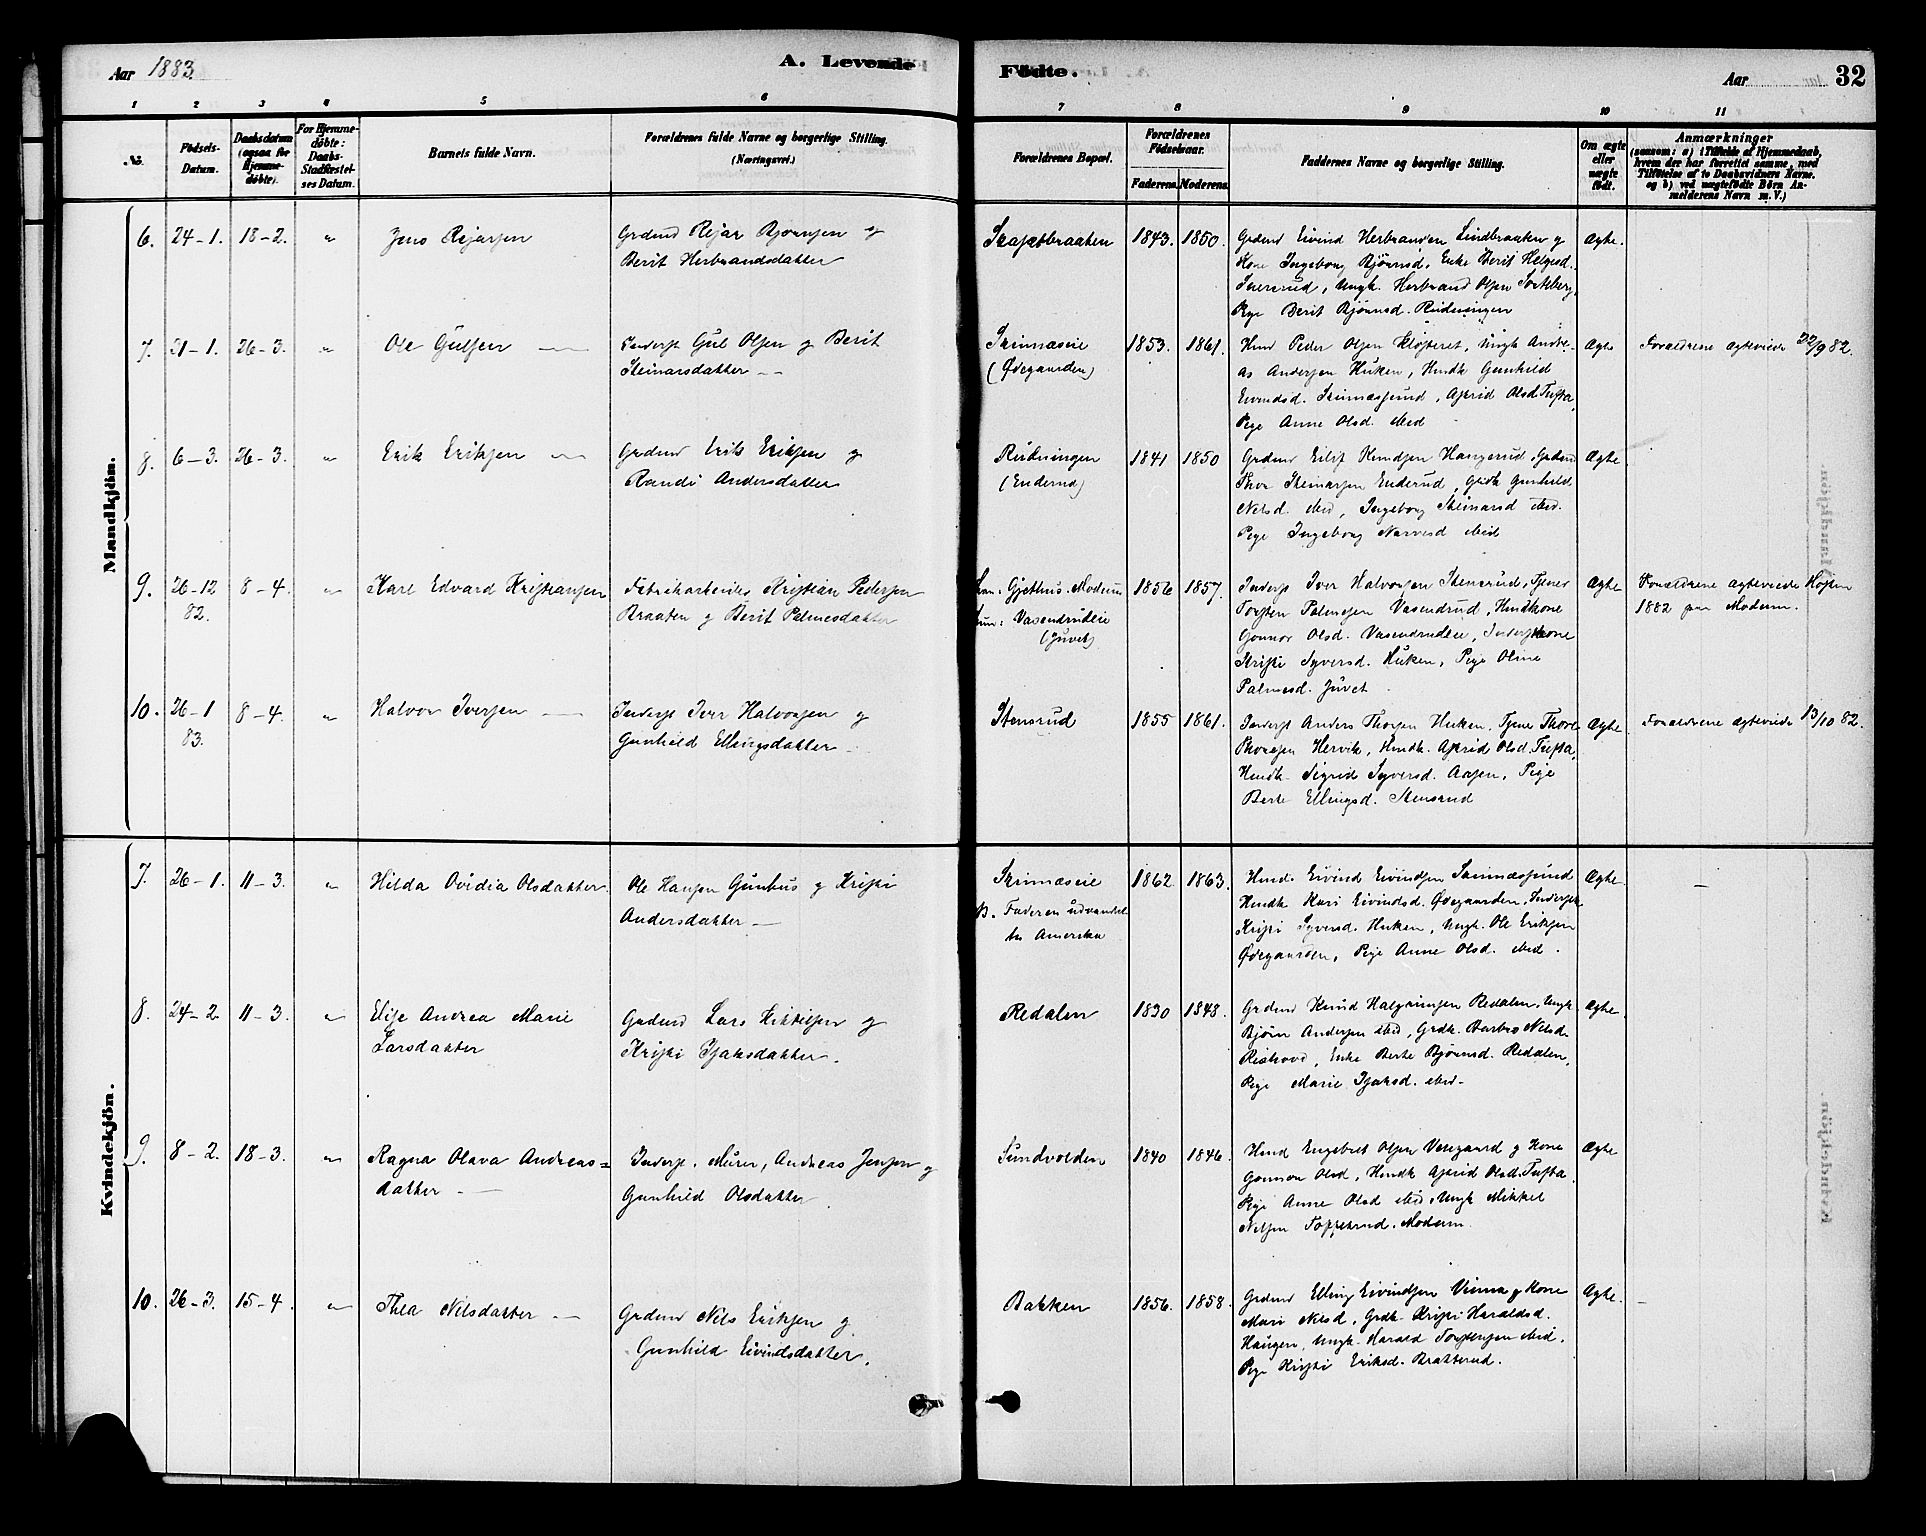 Aar 1883.
A. Levende Fødte.
Aar 32
1 2 3 4 5 6 7 8 9 10 11
No. Fødsels-Datum. Daabsdatum (ogsaa for Hjemme-døbte). For Hjemme-døbte: Daabs-Stadfæstel-ses Datum. Barnets fulde Navn. Forældrenes fulde Navne og borgerlige Stilling. (Næringsvei.)
Forældrenes Bopæl. Forældrenes Fødselsaar. Faderens. Moderens. Faddernes Navne og borgerlige Stilling. Om ægte eller uægte født. Anmærkninger (saasom: a) Tilfælde af Hjemmedaab, hvem der har forrettet samme, med Tilføielse af to Daabsvidners Navne. og b) ved uægtefødte Børn An-melderens Navn m. V.)
Mandkjön.
6. 24-1. 18-2. " Jens Rejarsen
Grdmd Rejar Bjørnsen og
Berit Herbrandsdatter
1843. 1850.
Grdmd Eivind Herbrandsen Lindbraaten og
Kone Ingeborg Bjørnsd. Enke Berit Helgesd.
Ungk. Herbrand Olsen
Pige Berit Bjørnsd. Rudningen
Ægte.
7. 21-1. 26-3. " Ole Gulsen
Inderst Gul Olsen og Berit
Steinarsdatter
Skinnæseie
(Ødegaarden)
1853. 1861.
Hmd Peder Olsen Kløfteret, Ungk Andre-
as Andersen Huken, Hmdk Gunhild
Eivindsd. Skinnæssund, Astrid Olsd. Tufta,
Pige Anne Olsd. ibid
Ægte
Forældrene ægteviede 22/9 82.
8. 6-3. 26-3. " Erik Eriksen
Grdmd Erik Eriksen og
Randi Andersdatter
Rudningen
(Enderud)
1841 1850
Grdmd Eilif Knudsen Haugerud, Grdmd
Thor Steinarsen Enderud, Grdk Gunhild
Nilsd. ibid, Ingeborg Steinarsd ibid.
Pige Ingeborg Narvesd ibid
Ægte.
9. 26-12 82. 8-4. " Karl Edvard Kristiansen
Fabrikarbeider Kristian Pedersen
Braaten og Berit Palmesdatter
Han: Gjethus. Modum
Hun: Vasendrudeie
(Juvet)
1856 1857.
Inderst Iver Halvorsen Stensrud, Tjener
Torsten Palmesen Vasendrud, Hmdkone
Gonnor Olsd. Vasendrudeie, Inderstkone
Kristi Syversd. Huken, Pige Oline
Palmesd. Juvet.
Ægte
Forældrene ægteviede Høsten
1882 paa Modum.
10. 26-1 83. 8-4. " Halvor Iversen
Inderst Iver Halvorsen og
Gunhild Ellingsdatter
Stensrud
1855 1861.
Inderst Anders Thorsen Huken, Tjener Thore
Thoresen Hervik, Hmdk. Astrid Olsd. Tufta,
Hmdk. Sigrid Syversd. Aasen, Pige
Berte Ellingsd. Stensrud
Ægte.
Forældrene ægteviede 13/10 82.
Kvindekjön.
7. 26-1. 11-3. " Hilda Ovidia Olsdatter
Ole Hansen Gunhus og Kristi
Andersdatter
Skinnæseie
B. Faderen udvandret
til Amerika
1862 1863.
Hmd. Eivind Eivindsen Skinnæssund
Hmdk Kari Eivindsd. Ødegaarden, Inderstk
Kristi Syversd. Huken, Ungk. Ole Eriksen
Ødegaarden, Pige Anne Olsd. ibid.
Ægte
8. 24-2 11-3. " Elise Andrea Marie
Larsdatter
Grdmd Lars Kittilsen og
Kristi Isaksdatter.
Redalen
1830 1848.
Grdmd Knud Halgrimsen Redalen, Ungk
Bjørn Andersen ibid, Grdk. Barbro Nilsd.
Enke Berte Bjørnsd. Redalen,
Pige Marie Isaksd. ibid.
Ægte.
9. 8-2. 18-3. " Ragna Olava Andreas-
datter
Inderst. Murer, Andreas Jensen og
Gunhild Olsdatter
Sundvolden
1840 1846.
Hmd Engebret Olsen Vesegaard og Kone
Gonnor Olsd, Hmdk Astrid Olsd. Tufta.
Pige Anne Olsd ibid, Ungk Mikkel
Nilsen Modum.
Ægte
10. 26-3. 15-4. " Thea Nilsdatter
Grdmd Nils Eriksen og
Gunhild Eivindsdatter.
Bakken
1856. 1858.
Grdmd Elling Eivindsen Vinna og Kone
Mari Nilsd, Grdk. Kristi Haraldsd.
Haugen, Ungk. Harald Torstensen ibid.
Pige Kristi Eriksd. Bratterud.
Ægte.